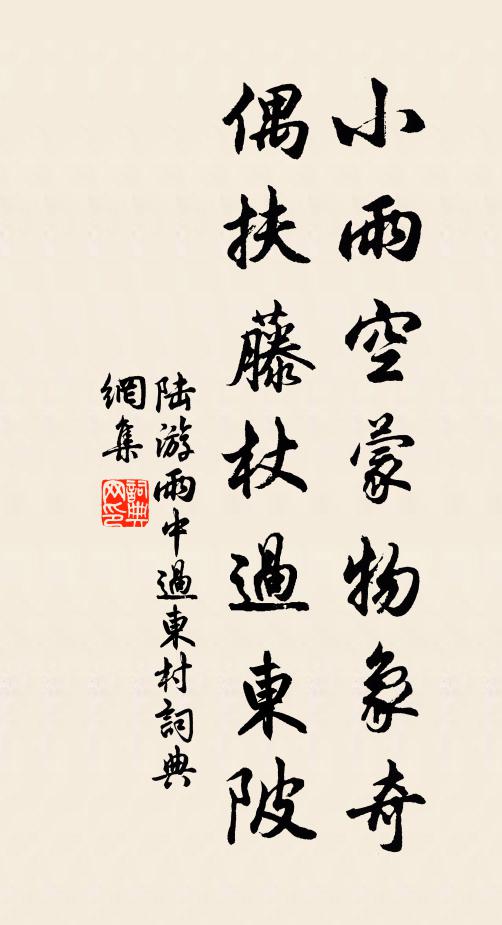 小雨空蒙物象奇
偶扶藤杖過東陂
陆游雨中過東村詞典
網集
詞典
网印